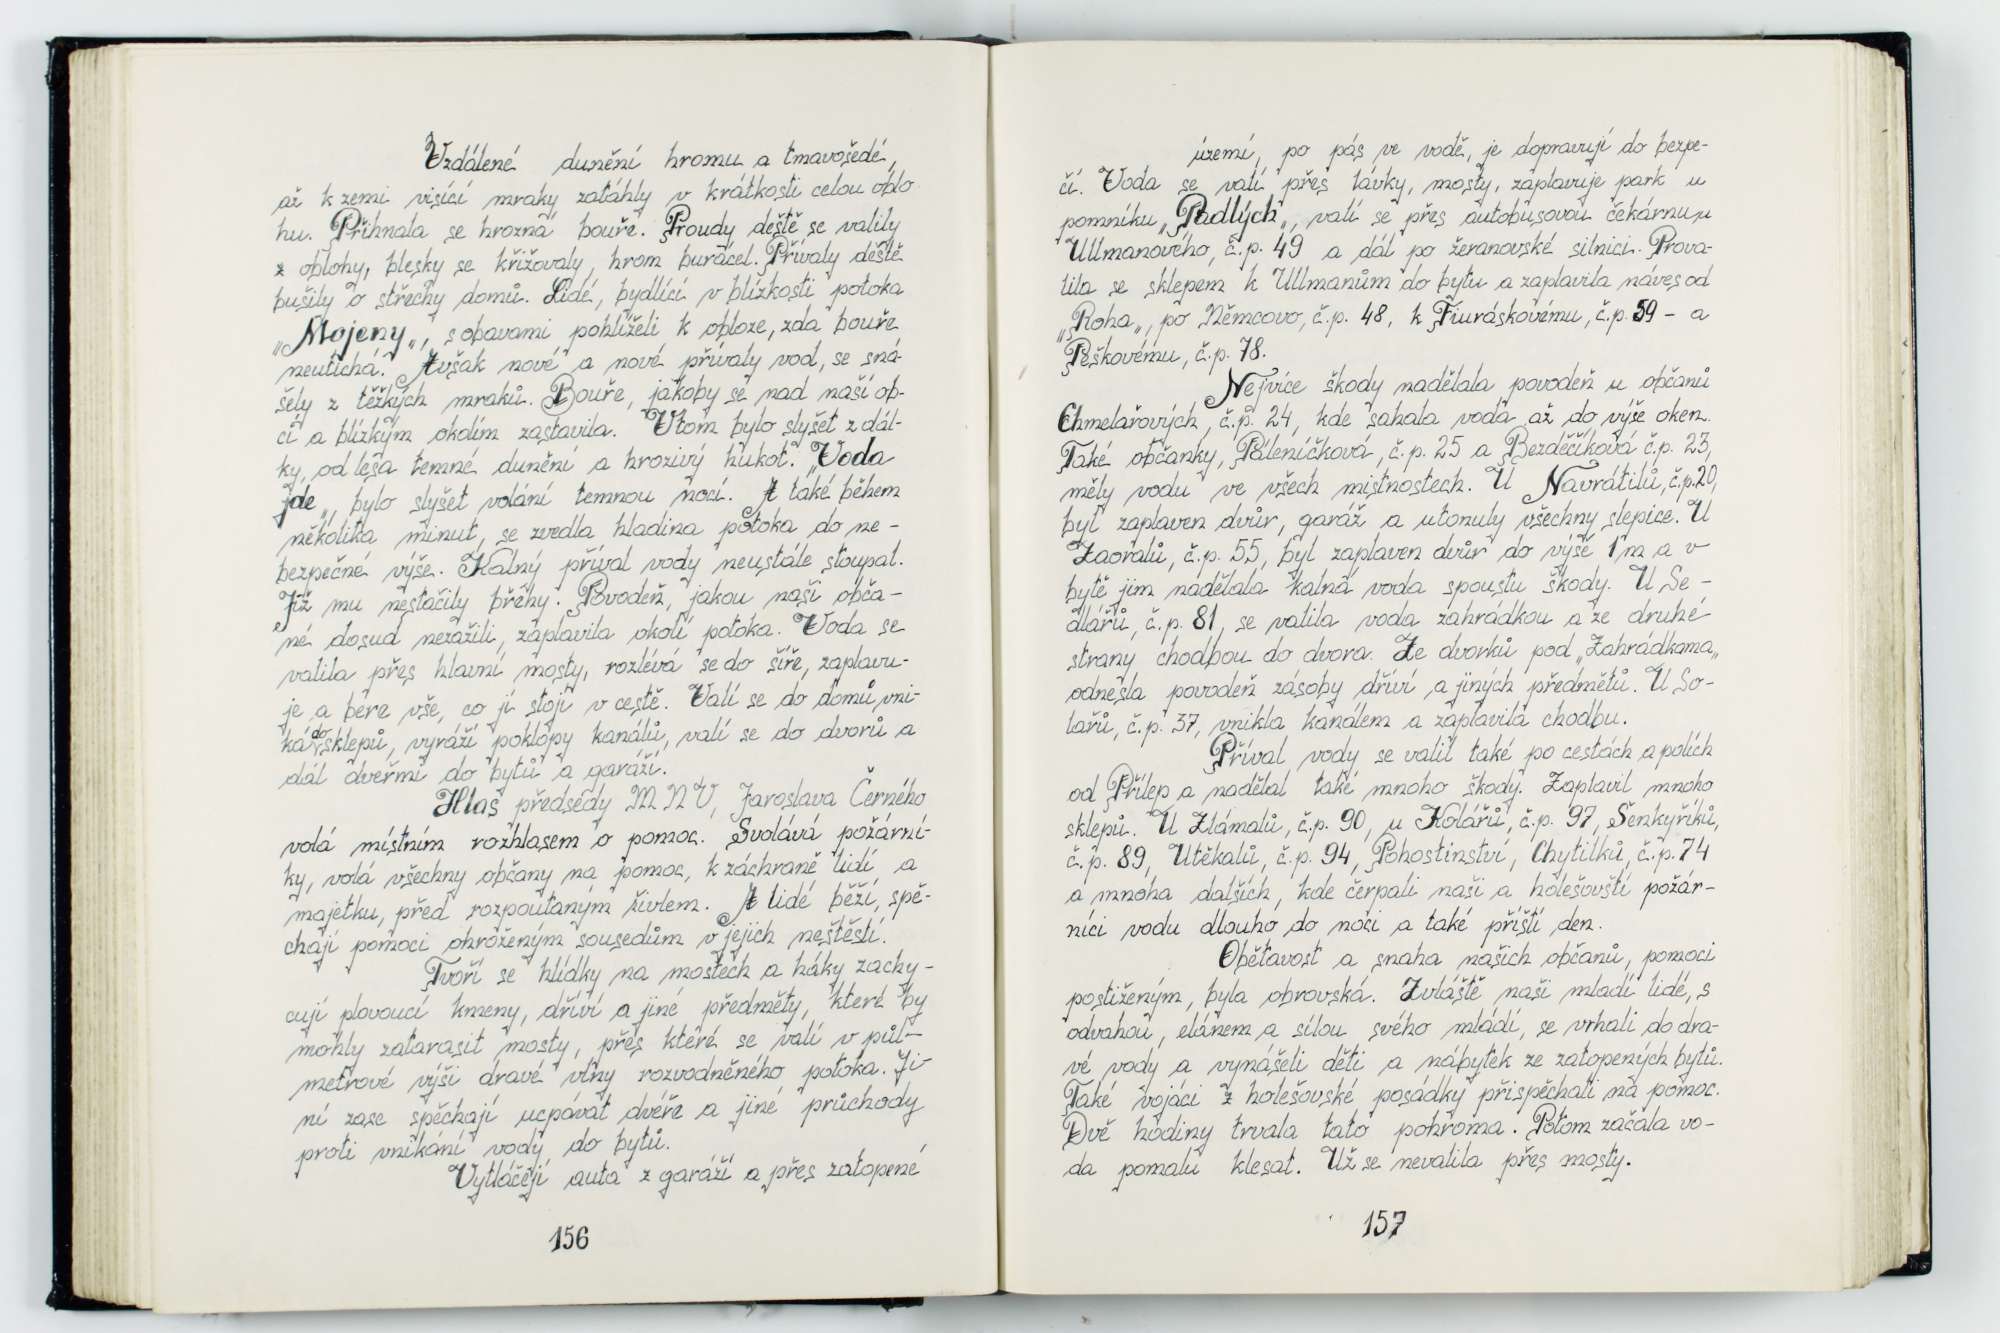 Vzdálené dunění hromu a tmavošedé,
až k zemi visící mraky zatáhly v krátkosti celou oblo
hu. Přihnala se hrozná bouře. Proudy deště se valily
z oblohy, blesky se křižovaly, hrom burácel. Přívaly deště
bušily o střechy domů. Lidé, bydlící v blízkosti potoka
„Mojeny„, s obavami pohlíželi k obloze, zda bouře
neutichá. Avšak nové a nové přívaly vod, se sná-
šely z těžkých mraků. Bouře, jakoby se nad naší ob-
cí a blízkým okolím zastavila. Vtom bylo slyšet z dál-
ky, od lesa temné dunění a hrozivý hukot. „Voda
jde„, bylo slyšet volání temnou nocí. A také během
několika minut, se zvedla hladina potoka do ne-
bezpečné výše. Kalný příval vody neustále stoupal.
Již mu nestačily břehy. Povodeň, jakou naši obča-
né dosud nezažili, zaplavila okolí potoka. Voda se
valila přes hlavní mosty, rozlévá se do šíře, zaplavu-
je a bere vše, co jí stojí v cestě. Valí se do domů vni-
ká do sklepů, vyráží poklopy kanálů, valí se do dvorů a
dál dveřmi do bytů a garáží.
Hlas předsedy M N V, Jaroslava Černého
volá místním rozhlasem o pomoc. Svolává požární-
ky, volá všechny občany na pomoc, k záchraně lidí a
majetku, před rozpoutaným živlem. A lidé běží, spě-
chají pomoci ohroženým sousedům v jejich neštěstí.
Tvoří se hlídky na mostech a háky zachy-
cují plovoucí kmeny, dříví a jiné předměty, které by
mohly zatarasit mosty, přes které se valí v půl-
metrové výši dravé vlny rozvodněného potoka. Ji-
ní zase spěchají ucpávat dvéře a jiné průchody
proti vnikání vody, do bytů.
Vytláčejí auta z garáží a přes zatopené
156
území, po pás ve vodě, je dopravují do bezpe-
čí. Voda se valí přes lávky, mosty, zaplavuje park u
pomníku „Padlých„, valí se přes autobusovou čekárnu u
Ullmanového, č.p. 49 a dál po žeranovské silnici. Prova-
lila se sklepem k Ullmanům do bytu a zaplavila náves od
„Roha„, po Němcovo, č.p. 48, k Fiuráskovému, č.p. 59 - a
Peškovému, č.p. 78.
Nejvíce škody nadělala povodeň u občanů
Chmelařových, č.p. 24, kde sahala voda až do výše oken.
Také občanky, Páleníčková, č.p. 25 a Bezděčíková č.p. 23,
měly vodu ve všech místnostech. U Navrátilů, č.p. 20,
byl zaplaven dvůr, garáž a utonuly všechny slepice. U
Zaoralů, č.p. 55, byl zaplaven dvůr do výše 1 m a v
bytě jim nadělala kalná voda spoustu škody. U Se-
dlářů, č.p. 81, se valila voda zahrádkou a ze druhé
strany chodbou do dvora. Ze dvorků pod „Zahrádkama„
odnesla povodeň zásoby dříví a jiných předmětů. U So-
lařů, č.p. 37, vnikla kanálem a zaplavila chodbu.
Příval vody se valil také po cestách a polích
od Přílep a nadělal také mnoho škody. Zaplavil mnoho
sklepů. U Zlámalů, č.p. 90, u Kolářů, č.p. 97, Šenkyříků,
č.p. 89, Utěkalů, č.p. 94, Pohostinství, Chytilků, č.p. 74
a mnoha dalších, kde čerpali naši a holešovští požár-
níci vodu dlouho do noci a také příští den.
Obětavost a snaha našich občanů, pomoci
postiženým, byla obrovská. Zvláště naši mladí lidé, s
odvahou, elánem a sílou svého mládí, se vrhali do dra-
vé vody a vynášeli děti a nábytek ze zatopených bytů.
Také vojáci z holešovské posádky přispěchali na pomoc.
Dvě hodiny trvala tato pohroma. Potom začala vo-
da pomalu klesat. Už se nevalila přes mosty.
157